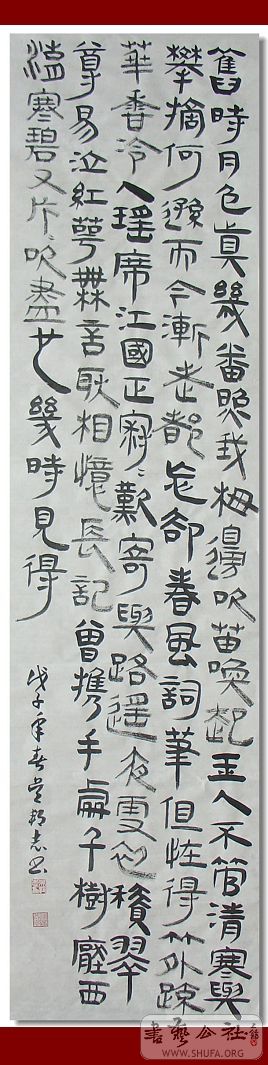 舊時月色眞幾番照我梅邊吹笛喚起玉人不管清寒與
攀摘何遜而今漸老都忘卻春風詞筆但恠得竹外疎
華香冷入瑤席江國正寂〻歎寄與路遙夜雪初積翠
尊易泣紅萼無言耿相憶長記曾攜手處千樹壓西
湖寒碧又片〻吹盡也幾時見得
戊子年春志書
書藝公社
WWW.SHUFA.ORG